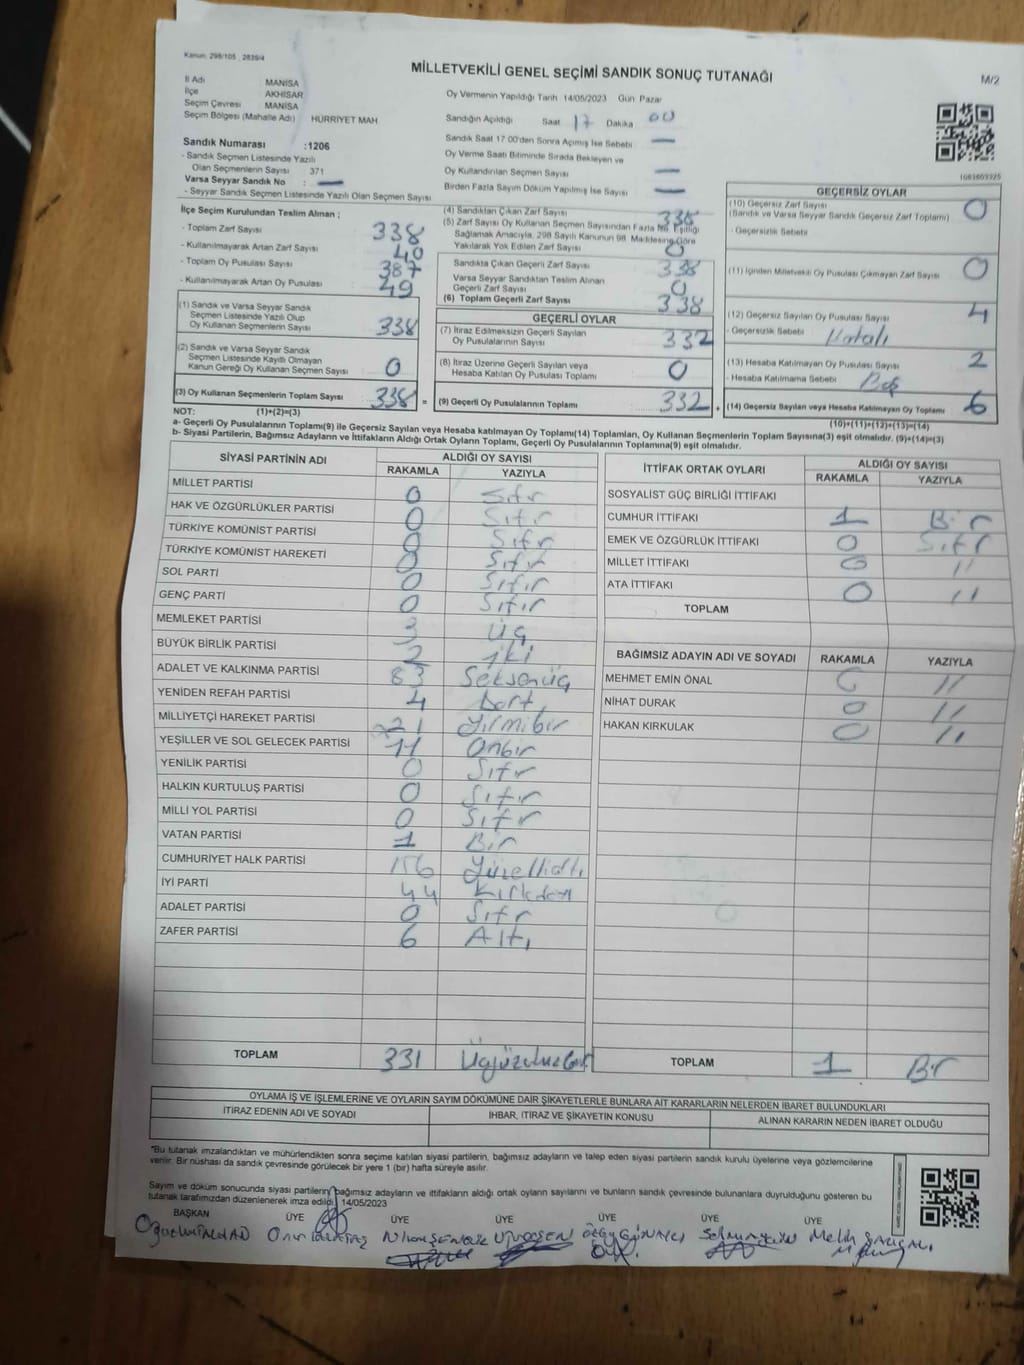 Kanun: 298/105 , 2839/4
MİLLETVEKİLİ GENEL SEÇİMİ SANDIK SONUÇ TUTANAĞI
M/2
İl Adı MANİSA
İlçe AKHİSAR
Seçim Çevresi MANİSA
Seçim Bölgesi (Mahalle Adı) HÜRRİYET MAH
Sandık Numarası :1206
- Sandık Seçmen Listesinde Yazılı
Olan Seçmenlerin Sayısı 371
Varsa Seyyar Sandık No : —
- Seyyar Sandık Seçmen Listesinde Yazılı Olan Seçmen Sayısı
Oy Vermenin Yapıldığı Tarih 14/05/2023 Gün Pazar
Sandığın Açıldığı Saat 17 Dakika 00
Sandık Saat 17:00'den Sonra Açılmış İse Sebebi —
Oy Verme Saati Bitiminde Sırada Bekleyen ve
Oy Kullandırılan Seçmen Sayısı —
Birden Fazla Sayım Döküm Yapılmış İse Sayısı —
İlçe Seçim Kurulundan Teslim Alınan ;
- Toplam Zarf Sayısı 338
- Kullanılmayarak Artan Zarf Sayısı 40
- Toplam Oy Pusulası Sayısı 387
- Kullanılmayarak Artan Oy Pusulası 49
(1) Sandık ve Varsa Seyyar Sandık
Seçmen Listesinde Yazılı Olup
Oy Kullanan Seçmenlerin Sayısı 338
(2) Sandık ve Varsa Seyyar Sandık
Seçmen Listesinde Kayıtlı Olmayan
Kanun Gereği Oy Kullanan Seçmen Sayısı 0
(3) Oy Kullanan Seçmenlerin Toplam Sayısı 338 =
(4) Sandıktan Çıkan Zarf Sayısı 338
(5) Zarf Sayısı Oy Kullanan Seçmen Sayısından Fazla İse, Eşitliği
Sağlamak Amacıyla, 298 Sayılı Kanunun 98. Maddesine Göre
Yakılarak Yok Edilen Zarf Sayısı 0
Sandıkta Çıkan Geçerli Zarf Sayısı 338
Varsa Seyyar Sandıktan Teslim Alınan
Geçerli Zarf Sayısı 0
(6) Toplam Geçerli Zarf Sayısı 338
GEÇERLİ OYLAR
(7) İtiraz Edilmeksizin Geçerli Sayılan
Oy Pusulalarının Sayısı 332
(8) İtiraz Üzerine Geçerli Sayılan veya
Hesaba Katılan Oy Pusulası Toplamı 0
(9) Geçerli Oy Pusulalarının Toplamı 332 +
1683603325
GEÇERSİZ OYLAR
(10) Geçersiz Zarf Sayısı 0
(Sandık ve Varsa Seyyar Sandık Geçersiz Zarf Toplamı)
- Geçersizlik Sebebi
(11) İçinden Milletvekili Oy Pusulası Çıkmayan Zarf Sayısı 0
(12) Geçersiz Sayılan Oy Pusulası Sayısı 4
- Geçersizlik Sebebi Hatalı
(13) Hesaba Katılmayan Oy Pusulası Sayısı 2
- Hesaba Katılmama Sebebi Boş
(14) Geçersiz Sayılan veya Hesaba Katılmayan Oy Toplamı 6
NOT: (1)+(2)=(3) (10)+(11)+(12)+(13)=(14)
a- Geçerli Oy Pusulalarının Toplamı(9) ile Geçersiz Sayılan veya Hesaba katılmayan Oy Toplamı(14) Toplamları, Oy Kullanan Seçmenlerin Toplam Sayısına(3) eşit olmalıdır. (9)+(14)=(3)
b- Siyasi Partilerin, Bağımsız Adayların ve İttifakların Aldığı Ortak Oyların Toplamı, Geçerli Oy Pusulalarının Toplamına(9) eşit olmalıdır.
SİYASİ PARTİNİN ADI ALDIĞI OY SAYISI
RAKAMLA YAZIYLA
MİLLET PARTİSİ 0 Sıfır
HAK VE ÖZGÜRLÜKLER PARTİSİ 0 Sıfır
TÜRKİYE KOMÜNİST PARTİSİ 0 Sıfır
TÜRKİYE KOMÜNİST HAREKETİ 0 Sıfır
SOL PARTİ 0 Sıfır
GENÇ PARTİ 0 Sıfır
MEMLEKET PARTİSİ 3 Üç
BÜYÜK BİRLİK PARTİSİ 2 iki
ADALET VE KALKINMA PARTİSİ 83 Seksenüç
YENİDEN REFAH PARTİSİ 4 Dört
MİLLİYETÇİ HAREKET PARTİSİ 21 Yirmibir
YEŞİLLER VE SOL GELECEK PARTİSİ 11 Onbir
YENİLİK PARTİSİ 0 Sıfır
HALKIN KURTULUŞ PARTİSİ 0 Sıfır
MİLLİ YOL PARTİSİ 0 Sıfır
VATAN PARTİSİ 1 Bir
CUMHURİYET HALK PARTİSİ 156 Yüzellialtı
İYİ PARTİ 44 Kırkdört
ADALET PARTİSİ 0 Sıfır
ZAFER PARTİSİ 6 Altı
TOPLAM 331 Üçyüzotuzbir
İTTİFAK ORTAK OYLARI ALDIĞI OY SAYISI
RAKAMLA YAZIYLA
SOSYALİST GÜÇ BİRLİĞİ İTTİFAKI
CUMHUR İTTİFAKI 1 Bir
EMEK VE ÖZGÜRLÜK İTTİFAKI 0 Sıfır
MİLLET İTTİFAKI 0 "
ATA İTTİFAKI 0 "
TOPLAM
BAĞIMSIZ ADAYIN ADI VE SOYADI RAKAMLA YAZIYLA
MEHMET EMİN ÖNAL 0 "
NİHAT DURAK 0 "
HAKAN KIRKULAK 0 "
TOPLAM 1 Bir
OYLAMA İŞ VE İŞLEMLERİNE VE OYLARIN SAYIM DÖKÜMÜNE DAİR ŞİKAYETLERLE BUNLARA AİT KARARLARIN NELERDEN İBARET BULUNDUKLARI
İTİRAZ EDENİN ADI VE SOYADI İHBAR, İTİRAZ VE ŞİKAYETİN KONUSU ALINAN KARARIN NEDEN İBARET OLDUĞU
*Bu tutanak imzalandıktan ve mühürlendikten sonra seçime katılan siyasi partilerin, bağımsız adayların ve talep eden siyasi partilerin sandık kurulu üyelerine veya gözlemcilerine
verilir. Bir nüshası da sandık çevresinde görülecek bir yere 1 (bir) hafta süreyle asılır.
Sayım ve döküm sonucunda siyasi partilerin, bağımsız adayların ve ittifakların aldığı ortak oyların sayılarını ve bunların sandık çevresinde bulunanlara duyrulduğunu gösteren bu
tutanak tarafımızdan düzenlenerek imza edildi. 14/05/2023
BAŞKAN ÜYE ÜYE ÜYE ÜYE ÜYE ÜYE